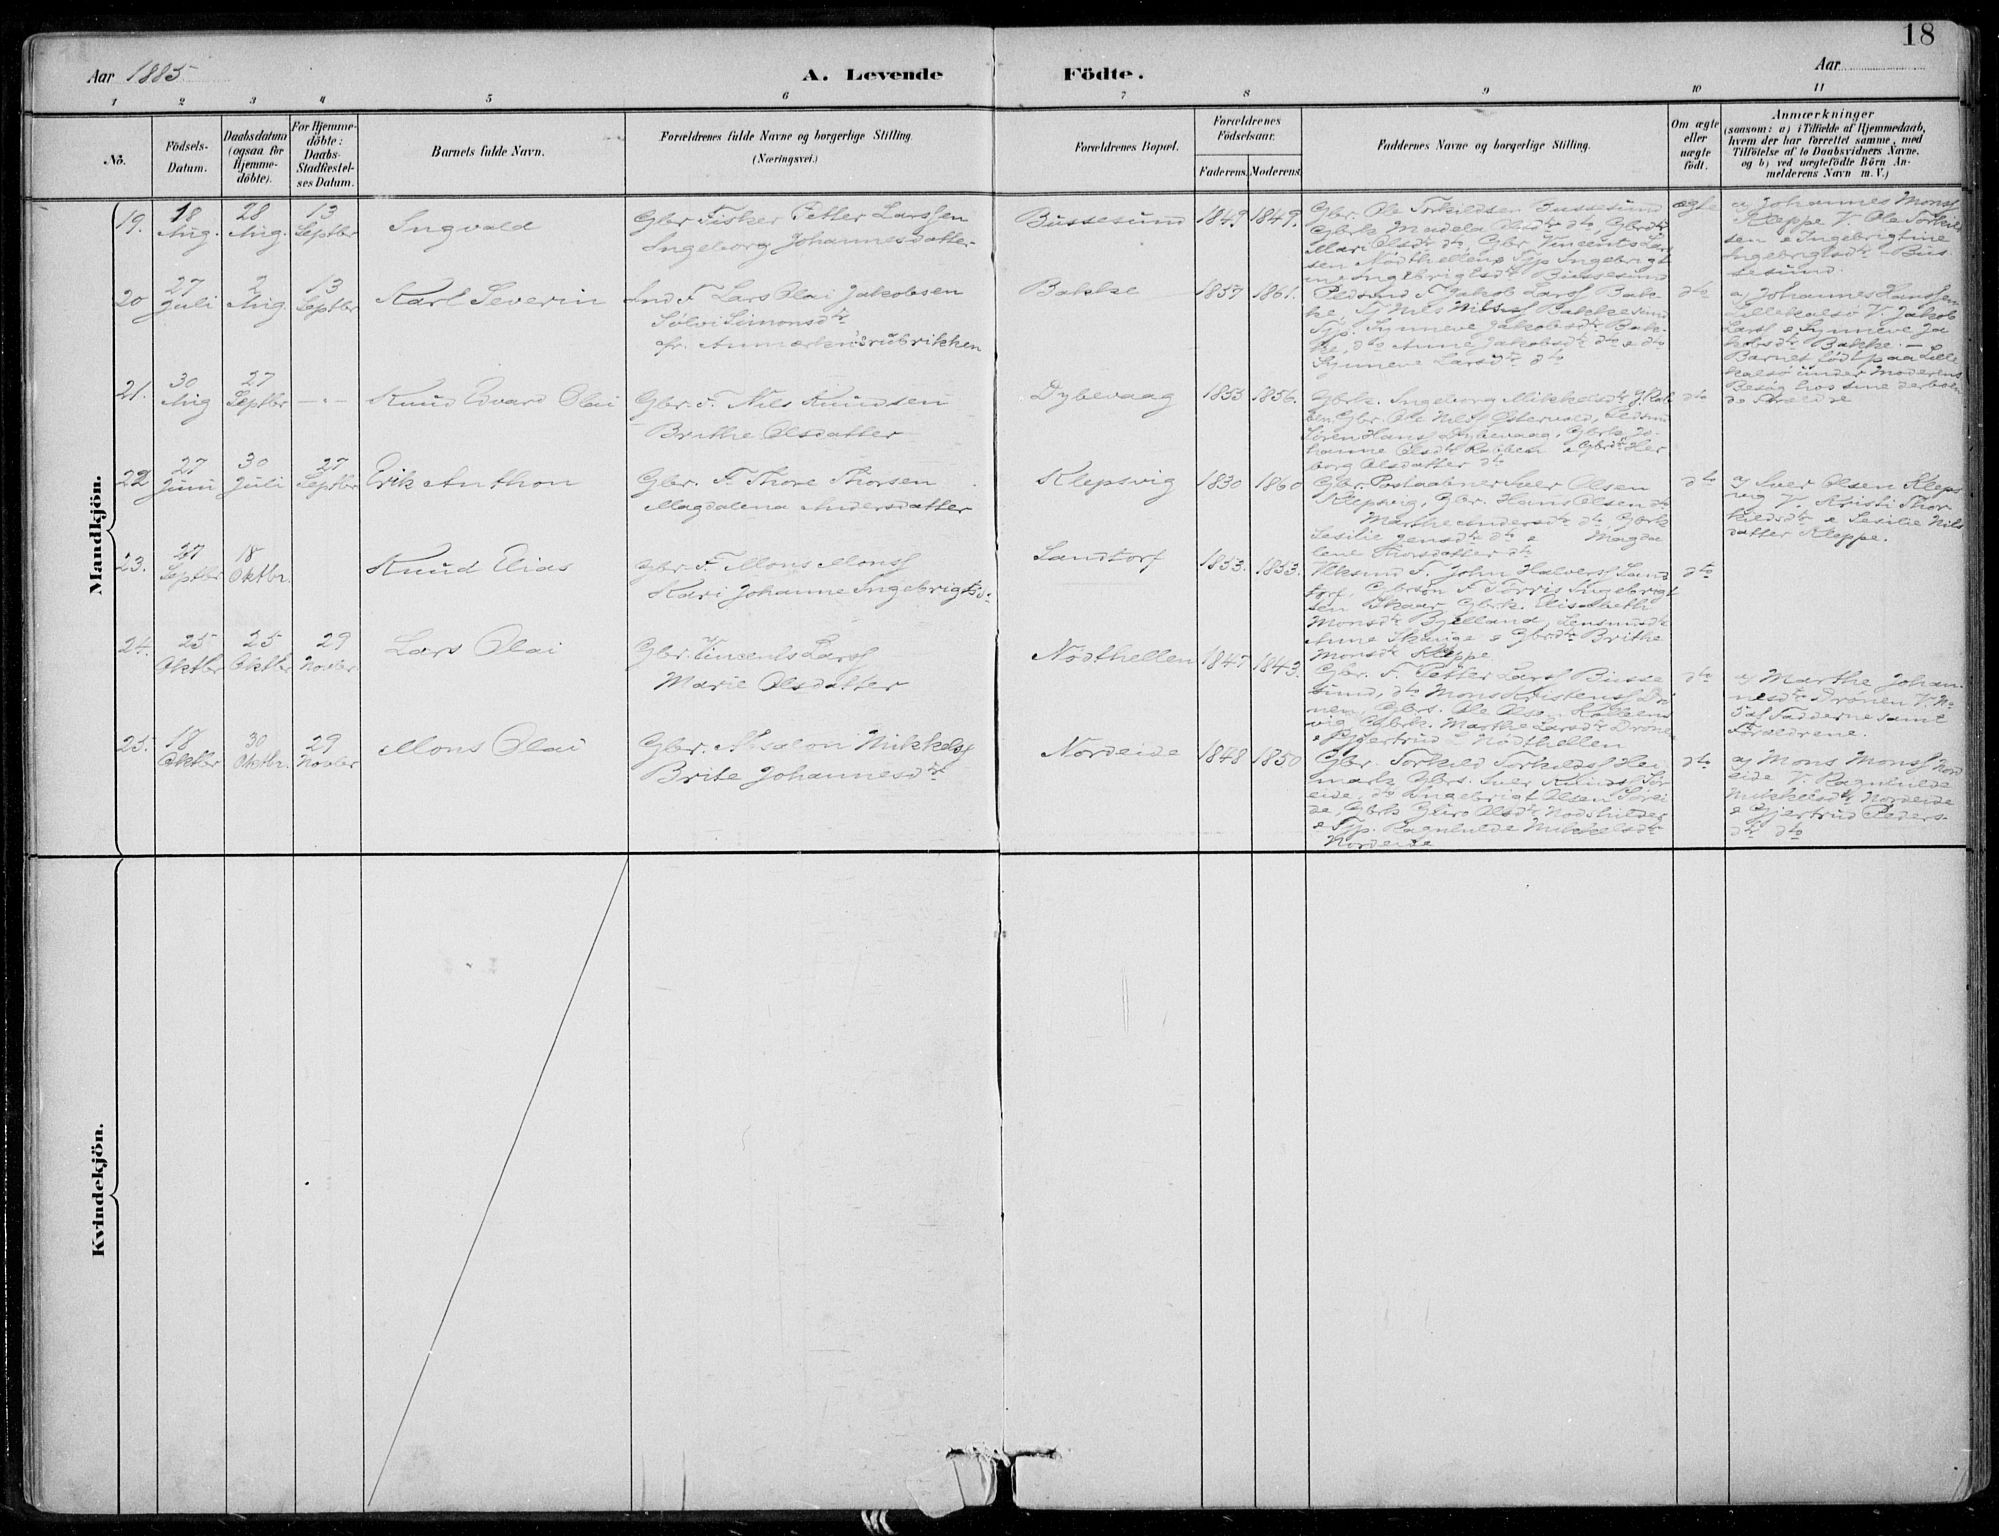 18
Aar 1885
A. Levende
Födte.
Aar
1 2 3 4 5 6 7 8 9 10 11
No.
Födsels-
Datum.
Daabsdatum
(ogsaa for
Hjemme-
döbte).
For Hjemme-
döbte:
Daabs-
Stadfæstel-
ses Datum.
Barnets fulde Navn.
Forældrenes fulde Navne og borgerlige Stilling.
(Næringsvei.)
Forældrenes Bopæl.
Forældrenes
Födselsaar.
Faderens. Moderens.
Faddernes Navne og borgerlige Stilling.
Om ægte
eller
uægte
födt.
Anmærkninger
(saasom: a) i Tilfælde af Hjemmedaab,
hvem der har forrettet samme, med
Tilföielse af to Daabsvidners Navne,
og b) ved uægtefödte Börn An-
melderens Navn m. V.)
Mandkjön.
19.
18
Aug.
28
Aug.
13
Septbr
Ingvald
Gbr Fisker Petter Larssen
Ingeborg Johannesdatter
Bussesund
1849
1849.
Gbr. Ole Torkildsen Bussesund
Gbrk Madela Olsdtr dto, Gbrdtr
Mari Olsdtr dto, Gbr Vincents Lars
sen Nödthellen, Tjp Ingebrigt
ine Ingebrigtsdtr Bussesund
ægte
a, Johannes Monss
Kleppe V. Ole Torkild
sen & Ingebrigtine
Ingebrigtsdtr Bus
sesund.
20
27
Juli
2
Aug.
13
Septbr
Karl Severin
Ind F. Lars Olai Jakobsen
Sølvi Simonsdtr
cfr. Anmærkn:srubrikken
Bakke
1857
1861.
F. Jakob Larss Bak
ke, Nils Nilss Bakkesund
Tjp. Synneve Jakobsdtr Bak-
ke, dto Anne Jakobsdtr dto & dto
Synneve Larsdtr dto
dto
a, Johannes Hanssen
Lillekalsö V. Jakob
Larss & Synneve Ja
kobsdtr Bakke. —
Barnet födt paa Lille
kalsö under Moderens
Besög hos sine derboen
de Foræidre
21.
30
Aug
27
Septbr
-"-
Knud Edvard Olai
Gbr. F. Nils Knudsen
Brithe Olsdatter
Dybevaag
1855
1856.
Gbrk. Ingeborg Mikkelsdtr
Gbr Ole Nilss Østervold,
Sören Hanss Dybevaag, Gbrk Jo-
hanne Olsdtr Rabben & Gbrdtr Her
borg Olsdatter dto
dto
22
27
Juni
30
Juli
27
Septbr
Erik Anthon
Gbr. F. Thore Thorsen
Magdalena Andersdatter
Klepsvig
1830
1860
Gbr. Postaabner Iver Olsen
Klepsvig, Gbr. Hans Olsen dto
Marthe Andersdtr dto, Gbrk
Sesilie Jensdtr dto & Magda
lene Thorsdatter dto
dto
a, Iver Olsen Kleps
vig V. Kristi Thor
kildsdtr & Sesilie Nils
datter Kleppe.
23.
27
Septbr
18
Oktbr.
Knud Elias
Gbr F Mons Monss
Kari Johanne Ingebrigtsd.
Landtorf
1853.
1853.
F. John Halvorss Land
torf, Gbrsön F Torris Ingebrigt
sen Skaar, Gbrk. Elisabeth
Monsdtr Bjelland, Lensmdtr
Anne Skurge & Gbrdtr Brithe
Monsdtr Kleppe
dto
24.
25
Oktbr
25
Oktbr.
29
Novbr
Lars Olai
Gbr. Vincents Larss
Marie Olsdatter
Nödthellen
1847
1843.
Gbr. F. Petter Larss Busse
sund, dto Mons Kristenss Drö
nen, Gbrs. Ole Olsen Kolbeens
vig, Gbrk. Marthe Larsdtr Drönen
& Gjertrud L Nödthellen
dto
a, Marthe Johan-
nesdtr Drönen V. No
5 af Fadderne samt
Forældrene.
25.
18
Oktbr
30
Oktbr.
29
Novbr
Mons Olai
Gbr. Absalon Mikkelss
Brite Johannesdtr
Nordeide
1848
1850
Gbr. Torkild Torkildss Hei
mark, Gbrs. Iver Knudss Sör
eide, dto Ingebrigt Olsen Sörei
de, Gbrk Guro Olsdtr
& Tjp. Ragnhilde Mikkelsdtr
Nordeide
dto
a, Mons Monss Nord
eide V. Ragnhilde
Mikkelsdtr Nordeide
& Gjertrud Peders-
dtr dto
Kvindekjön.